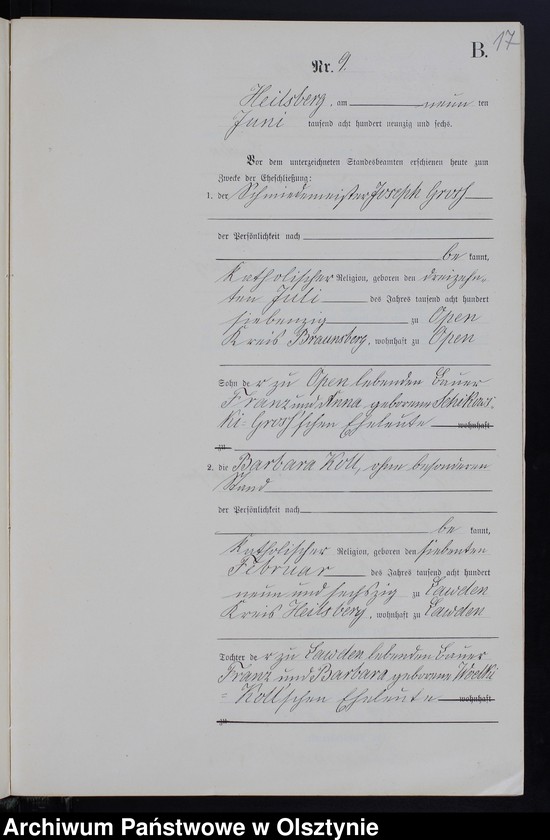 B. 17
Nr. 9.
Heilsberg, am neun ten
Juni tausend acht hundert neunzig und sechs.
Vor dem unterzeichneten Standesbeamten erschienen heute zum
Zwecke der Eheschließung:
1. der Schmiedemeister Joseph Grosch
der Persönlichkeit nach
be kannt,
katholischer Religion, geboren den dreizehn-
ten Juli des Jahres tausend acht hundert
siebenzig zu Open
Kreis Braunsberg, wohnhaft zu Open
Sohn de r zu Open lebenden Bauer
Franz und Anna geborene Schikows-
ki-Grosch'schen Eheleute wohnhaft
zu
2. die Barbara Koll, ohne besonderen
Stand
der Persönlichkeit nach
be kannt,
katholischer Religion, geboren den siebenten
Februar des Jahres tausend acht hundert
neun und sechszig zu Lawden
Kreis Heilsberg, wohnhaft zu Lawden
Tochter de r zu Lawden lebenden Bauer
Franz und Barbara geborene
-Koll'schen Eheleute wohnhaft
zu
Archiwum Państwowe w Olsztynie